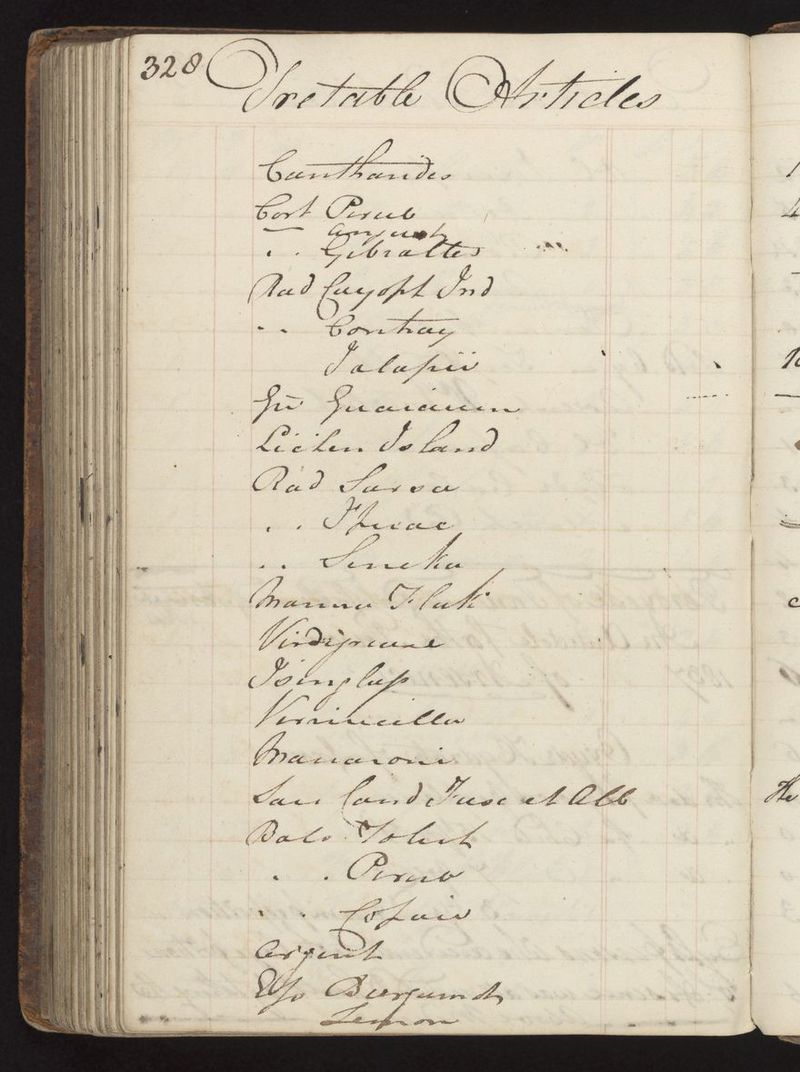 328 Tretable Articles
Cantharides
Cort Peruv
— angust
. . Gibralter
Rad Cayopt Ind
. . Contray
Jalapii
Gū Guaiacum
Lichen Island
Rad Sarsa
. . Ipecac
. . Seneka
Manna Flak
Virdigreane
Isinglass
Vermicilla
Maccaroni
Sac Cand Fusc et Alb
Bals Tolut
. . Peruv
. . Copaiv
Argent
Burgundy
Lemon